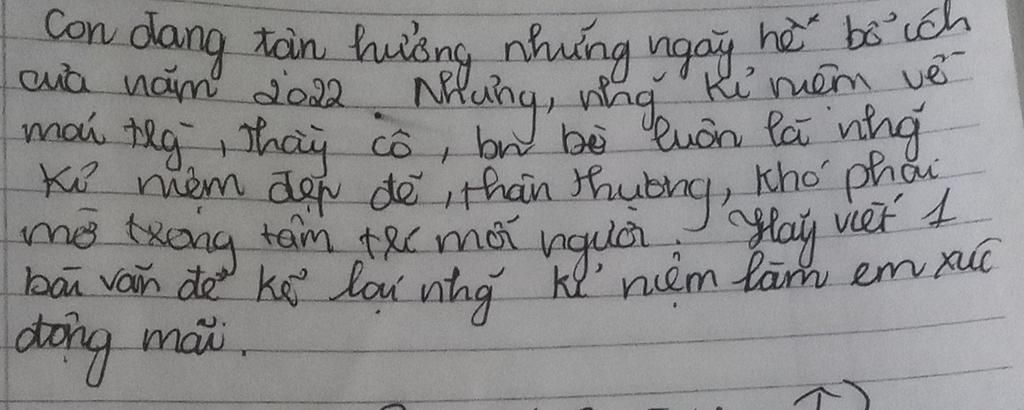 Con đang tận hưởng những ngày hè bổ ích
của năm 2022. Nhưng, nhg~ kỉ niệm về
mái trg`, thầy cô, bn bè luôn là nhg~
kỉ niệm đẹp đẽ, thân thương, khó phai
mờ trong tâm trí mỗi người. Hãy viết 1
bài văn để kể lại nhg~ kỉ niệm làm em xúc
động mãi.